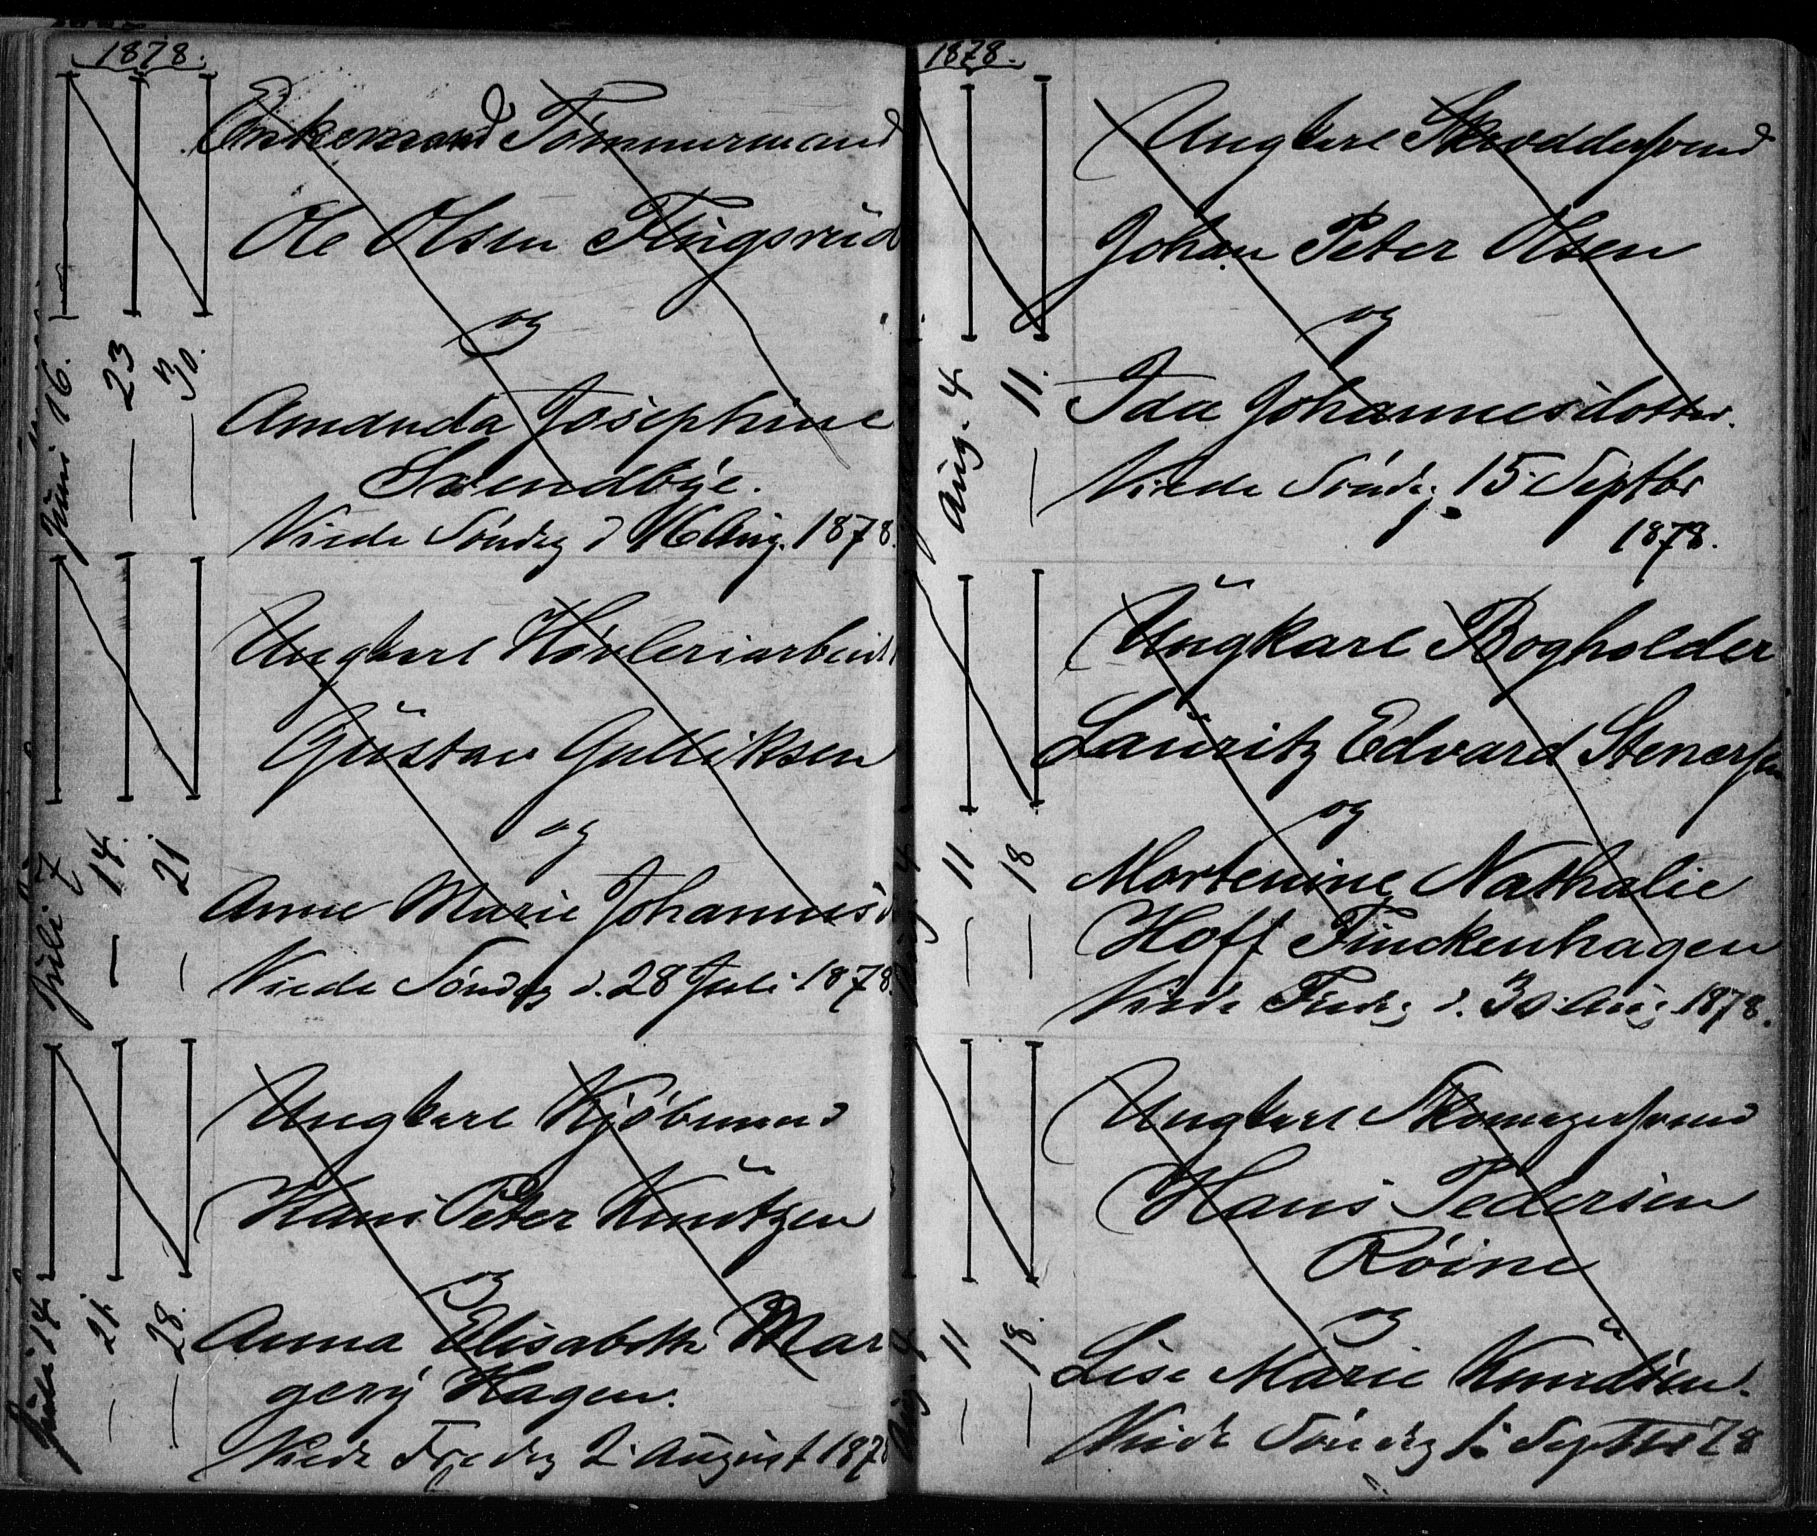 1878.
Enkemand Tømmermand
Ole Olsen Flugsrud
og
Amanda Josephine
Svendbye.
Viede Søndag d 16 Aug. 1878.
Juni 16.
— 23
— 30.
Ungkarl Høvleriarbeid
Gustav Gulliksen
og
Anne Marie Johannesd
Viede Søndag d. 28 Juli 1878.
Juli 7
— 14.
— 21
Ungkarl Kjøbmand
Hans Peter Knutzen
og
Anna Elisabeth Mar
gery Hagen.
Viede Fredag 2 August 1878
Juli 14
— 21.
— 28.
1878.
Ungkarl Skræddersvend
Johan Peter Olsen
og
Ida Johannesdotter.
Viede Søndag 15 Septbr
1878.
Aug. 4
— 11.
Ungkarl Bogholder
Lauritz Edvard Stenersen
og
Mortenine Nathalie
Hoff Finckenhagen
Viede Fredag d. 30 Aug 1878.
Aug 4
— 11
— 18
Ungkarl Skomagersvend
Hans Pedersen
Røine
og
Lise Marie Knudsen.
Viede Søndag 1 Septbr 78
Aug 4
— 11
— 18.